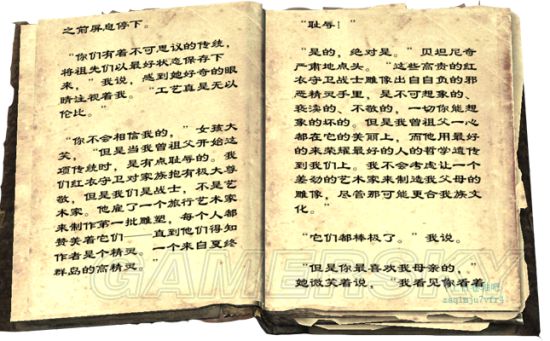 之前屏息停下。
“你们有着不可思议的传统，
将祖先们以最好状态保存下
来，”我说，感到她好奇的眼
睛注视着我。“工艺真是无以
伦比。”
“你不会相信我的，”女孩大
笑，“但是当我曾祖父开始这
项传统时，是有点耻辱的。我
们红衣守卫对家族抱有极大尊
敬，但是我们是战士，不是艺
术家。他雇了一个旅行艺术家
来制作第一批雕塑，每个人都
赞美着它们——直到他们得知
作者是个精灵。一个来自夏终
群岛的高精灵。”
“耻辱！”
“是的，绝对是。”贝坦尼奇
严肃地点头。“这些高贵的红
衣守卫战士雕像出自自负的邪
恶精灵手里，是不可想象的、
亵渎的、不敬的，一切你能想
象的坏的。但是我曾祖父一心
都在它的美丽上，而他用最好
的来荣耀最好的人的哲学遗传
到我们上。我不会考虑让一个
差劲的艺术家来制造我父母的
雕像，尽管那可能更合我族文
化。”
“它们都棒极了。”我说。
“但是你最喜欢我母亲的，”
她微笑着说，“我看见你看着
GAMERSKY